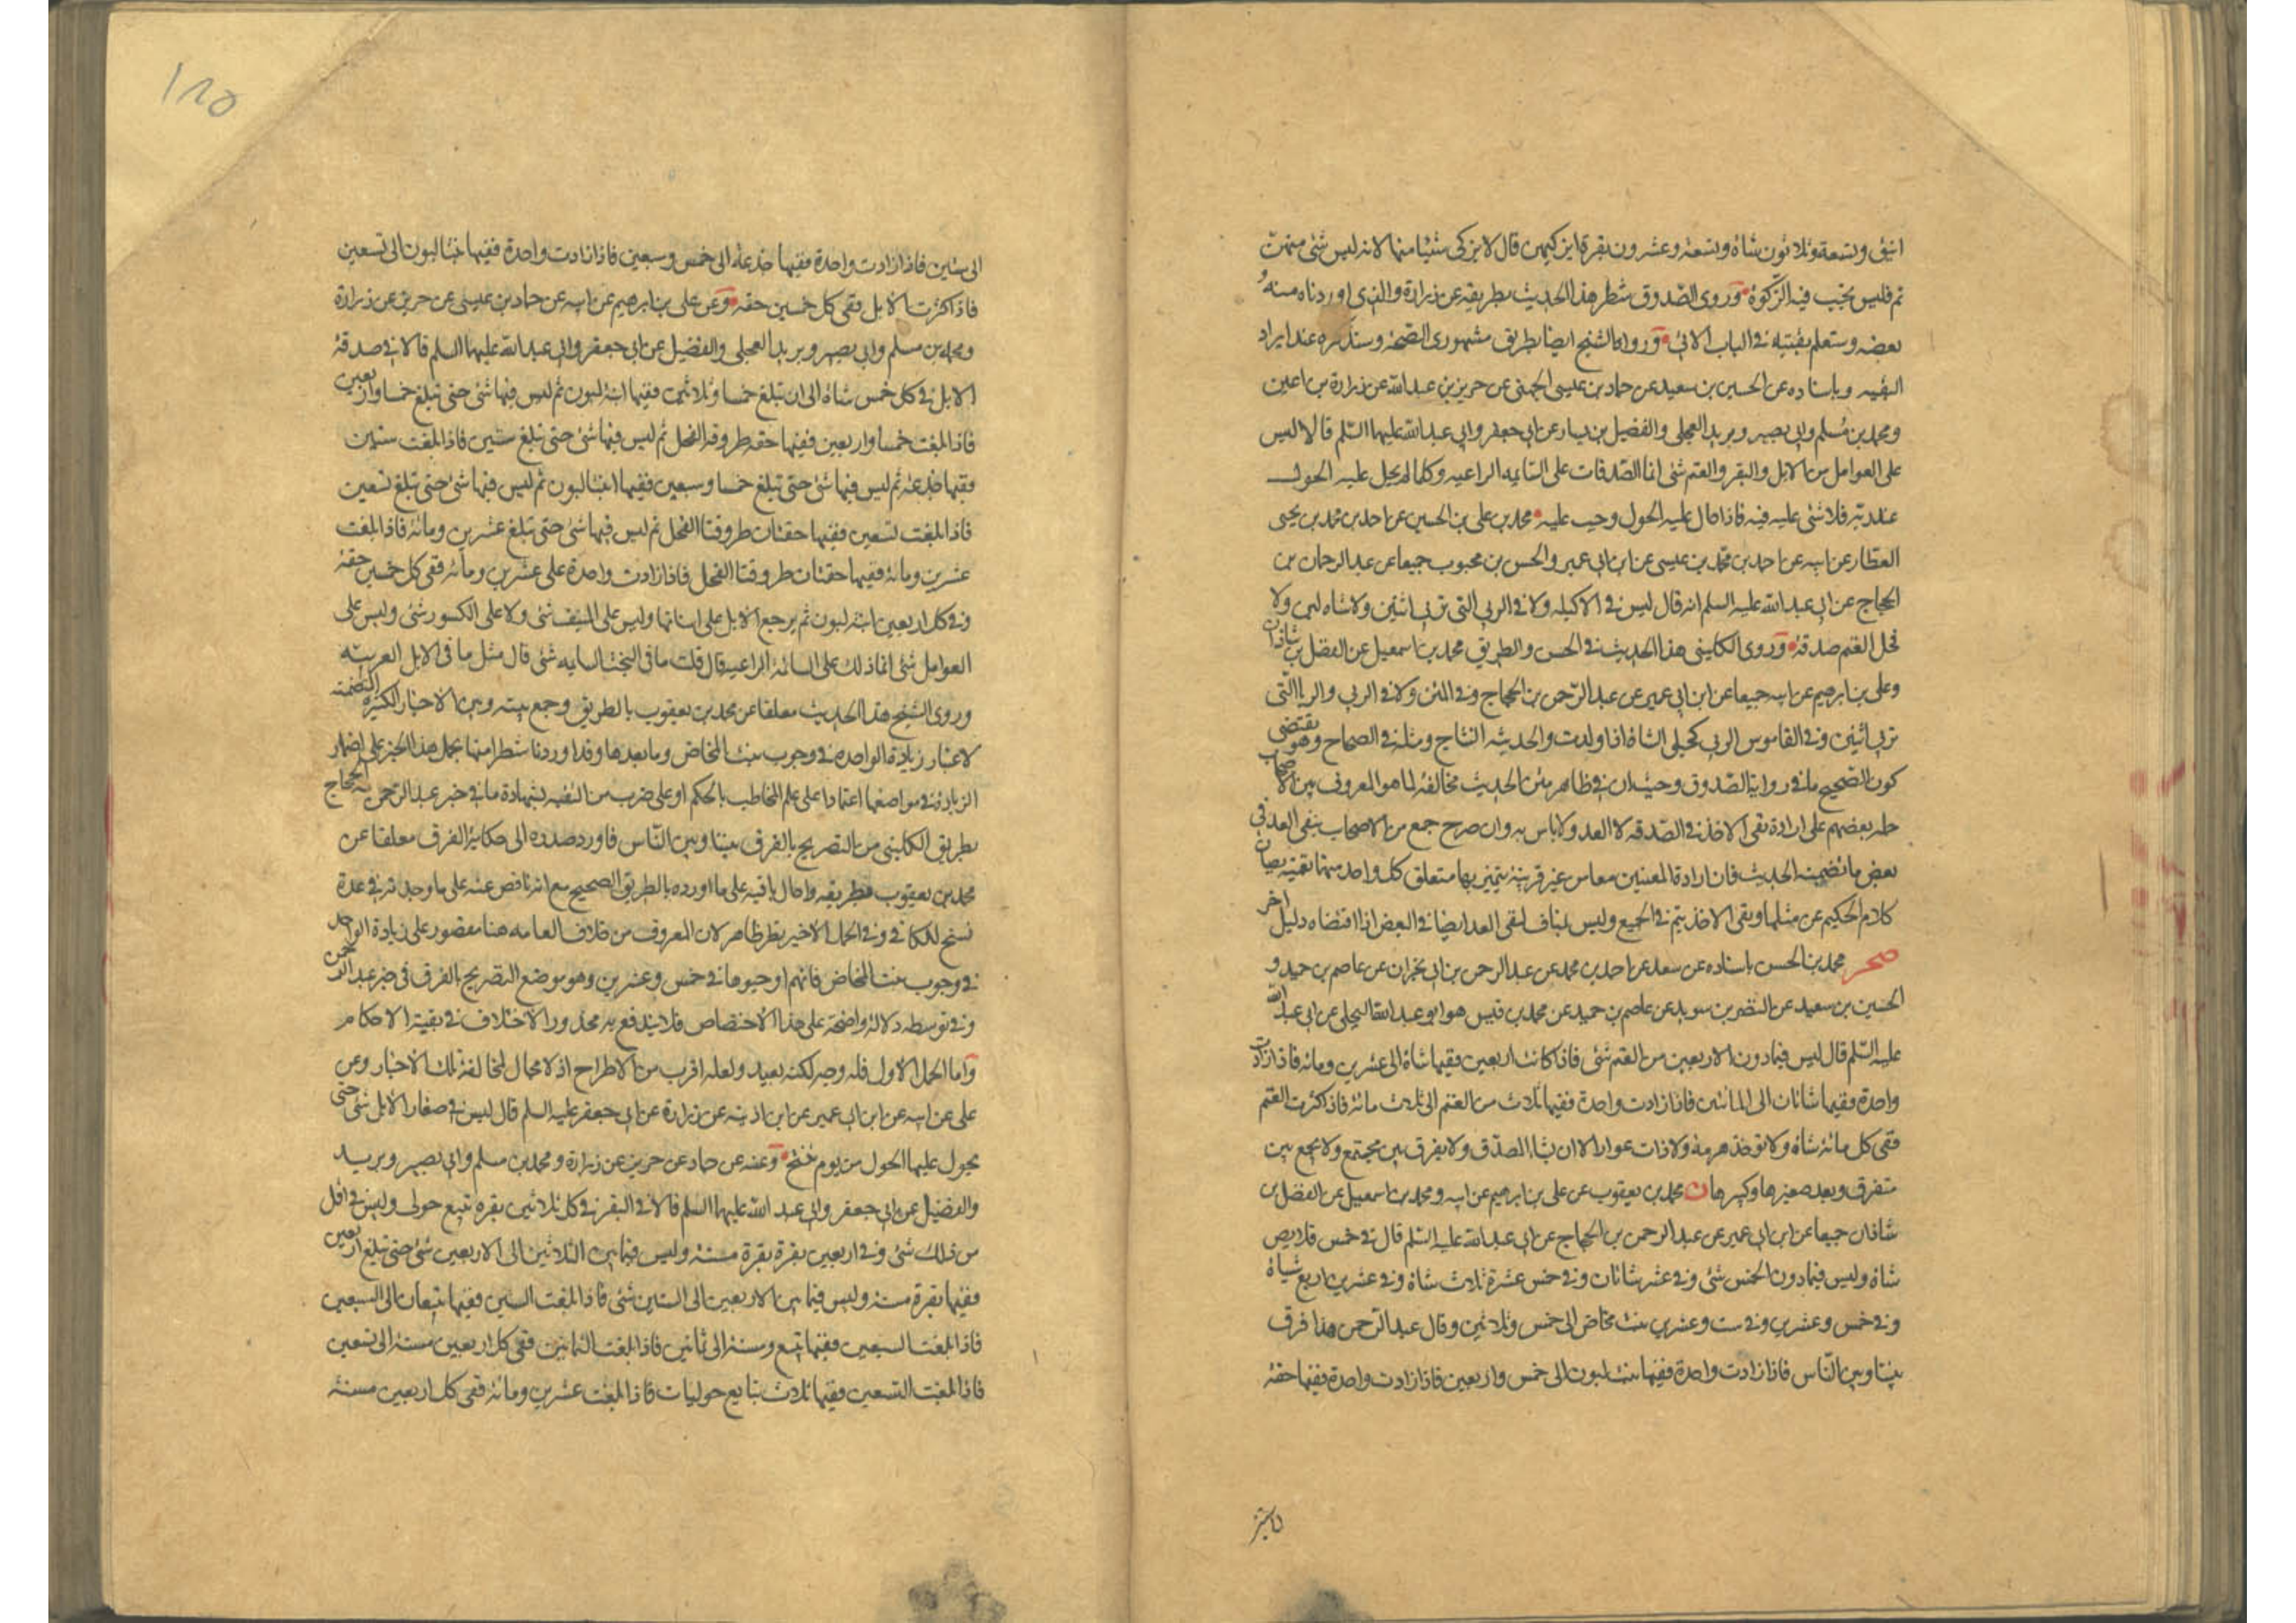 انيق وتسعة وثلاثون شاة وتسعة وعشرون بقرة ايزكيهن قال لا يزكى شيئا منها لانه ليس شئ منهن
تم فليس تجب فيه الزكوة وروى الصدوق شطر هذا الحديث بطريقه عن زرارة والذى اوردناه منه
بعضه وستعلم بقيته في الباب الاتى ورواه الشيخ ايضا بطريق مشهورى الصحة وسنذكره عند ايراد
البقيه وباسناده عن الحسين بن سعيد عن حماد بن عيسى الجهنى عن حريز بن عبد الله عن زرارة بن اعين
ومحمد بن مسلم وابى بصير وبريد العجلى والفضيل بن يسار عن ابى جعفر وابى عبد الله عليهما السلم قالا ليس
على العوامل من الابل والبقر والغنم شئ انما الصدقات على السايمه الراعيه وكلما لم يحل عليه الحول
عند ربه فلا شئ عليه فيه فاذا حال عليه الحول وجب عليه محمد بن على بن الحسين عن احمد بن محمد بن يحيى
العطار عن ابيه عن احمد بن محمد بن عيسى عن ابن ابى عمير والحسن بن محبوب جميعا عن عبد الرحمان بن
الحجاج عن ابى عبد الله عليه السلم انه قال ليس في الاكيله ولا في الربى التى تربى اثنين ولا شاه لبن ولا
فحل الغنم صدقة وروى الكلينى هذا الحديث في الحسن والطريق محمد بن اسمعيل عن الفضل بن شاذان
وعلى بن ابرهيم عن ابيه جميعا عن ابن ابى عمير عن عبد الرحمن بن الحجاج وفي المتن ولا في الربى والربا التى
تربى اثنين وفي القاموس الربى كحبلى الشاة اذا ولدت والحديثه النتاج ومثله في الصحاح وهو يقتضى
كون الصحيح ما في رواية الصدوق وحيث ان في ظاهر متن الحديث مخالفة لما هو المعروف بين الاصحاب
حمله بعضهم على ارادة نفى الاخذ في الصدقه لا العد ولا باس به وان صرح جمع من الاصحاب بنفى العد فى
بعض ما تضمنه الحديث فان ارادة المعنيين معا من غير قرينة يتميز بها متعلق كل واحد منهما بعينه يصان
كلام الحكيم عن مثلها ونفى الاخذ يتم في الجميع وليس بمناف لنفى العد ايضا في البعض اذا اقتضاه دليل اخر
صحر محمد بن الحسن باسناده عن سعد عن احمد بن محمد عن عبد الرحمن بن ابى نجران عن عاصم بن حميد و
الحسين بن سعيد عن النضر بن سويد عن عاصم بن حميد عن محمد بن قيس هو ابو عبد الله البجلى عن ابى عبد الله
عليه السلم قال ليس فيما دون الاربعين من الغنم شئ فاذا كانت اربعين ففيها شاة الى عشرين ومائه فاذا زادت
واحدة ففيها شاتان الى المائتين فاذا زادت واحدة ففيها ثلاث من الغنم الى ثلاث مائة فاذا كثرت الغنم
ففى كل مائة شاة ولا توخذ هرمة ولا ذات عوار الا ان يشاء المصدق ولا يفرق بين مجتمع ولا يجمع بين
متفرق ويعد صغيرها وكبيرها ن محمد بن يعقوب عن على بن ابرهيم عن ابيه ومحمد بن اسمعيل عن الفضل بن
شاذان جميعا عن ابن ابى عمير عن عبد الرحمن بن الحجاج عن ابى عبد الله عليه السلم قال في خمس قلايص
شاة وليس فيما دون الخمس شئ وفي عشر شاتان وفي خمس عشرة ثلاث شاة وفي عشرين اربع شياة
وفي خمس وعشرين وفي ست وعشرين بنت مخاض الى خمس وثلاثين وقال عبد الرحمن هذا فرق
بيننا وبين الناس فاذا زادت واحدة ففيها بنت لبون الى خمس واربعين فاذا زادت واحدة ففيها حقة
١٨٥
الى ستين فاذا زادت واحدة ففيها جذعة الى خمس وسبعين فاذا زادت واحدة ففيها بنتا لبون الى تسعين
فاذا كثرت الابل ففى كل خمسين حقه وعن على بن ابرهيم عن ابيه عن حماد بن عيسى عن حريز عن زرارة
ومحمد بن مسلم وابى بصير وبريد العجلى والفضيل عن ابى جعفر وابى عبد الله عليهما السلم قالا في صدقة
الابل في كل خمس شاة الى ان تبلغ خمسا وثلاثين ففيها ابنة لبون ثم ليس فيها شئ حتى تبلغ خمسا واربعين
فاذا بلغت خمسا واربعين ففيها حقه طروقة الفحل ثم ليس فيها شئ حتى تبلغ ستين فاذا بلغت ستين
ففيها جذعة ثم ليس فيها شئ حتى تبلغ خمسا وسبعين ففيها ابنتا لبون ثم ليس فيها شئ حتى تبلغ تسعين
فاذا بلغت تسعين ففيها حقتان طروقتا الفحل ثم ليس فيها شئ حتى تبلغ عشرين ومائة فاذا بلغت
عشرين ومائة ففيها حقتان طروقتا الفحل فاذا زادت واحدة على عشرين ومائة ففى كل خمسين حقة
وفي كل اربعين ابنة لبون ثم يرجع الابل على اسنانها وليس على النيف شئ ولا على الكسور شئ وليس على
العوامل شئ انما ذلك على السائمة الراعيه قال قلت ما فى البخت السايه شئ قال مثل ما فى الابل العربيه
وروى الشيخ هذا الحديث معلقا عن محمد بن يعقوب بالطريق وجمع بينه وبين الاخبار الكثيرة المتضمنة
لاعتبار زيادة الواحده في وجوب بنت المخاض وما بعدها وقد اوردنا شطرا منها بحمل هذا الخبر على اضمار
الزيادة في مواضعها اعتمادا على علم المخاطب بالحكم او على ضرب من التقيه بشهادة ما في خبر عبد الرحمن بن الحجاج
بطريق الكلينى من التصريح بالفرق بيننا وبين الناس فاورد صدره الى حكاية الفرق معلقا عن
محمد بن يعقوب بطريقه واحال باقيه على ما اورده بالطريق الصحيح مع انه ناقص عنه على ما وجدته في عدة
نسخ للكافى وفي الحمل الاخير نظر ظاهر لان المعروف من خلاف العامه هنا مقصور على زيادة الواحد
في وجوب بنت المخاض فانهم اوجبوها في خمس وعشرين وهو موضع التصريح بالفرق فى خبر عبد الرحمن
وفي توسطه دلالة واضحة على هذا الاختصاص فلا يندفع به محذور الاختلاف في بقية الاحكام
واما الحمل الاول فله وجه لكنه بعيد ولعله اقرب من الاطراح اذ لا مجال لمخالفة تلك الاخبار وعن
على عن ابيه عن ابن ابى عمير عن ابن اذينه عن زرارة عن ابى جعفر عليه السلم قال ليس في صغار الابل شئ حتى
يحول عليها الحول من يوم تنتج وعنه عن حماد عن حريز عن زرارة ومحمد بن مسلم وابى بصير وبريد
والفضيل عن ابى جعفر وابى عبد الله عليهما السلم قالا في البقر في كل ثلاثين بقره تبيع حولى وليس في اقل
من ذلك شئ وفي اربعين بقرة بقرة مسنة وليس فيما بين الثلاثين الى الاربعين شئ حتى تبلغ اربعين
ففيها بقرة مسنة وليس فيما بين الاربعين الى الستين شئ فاذا بلغت الستين ففيها تبيعان الى السبعين
فاذا بلغت السبعين ففيها تبيع ومسنة الى ثمانين فاذا بلغت الثمانين ففى كل اربعين مسنة الى تسعين
فاذا بلغت التسعين ففيها ثلاث تبايع حوليات فاذا بلغت عشرين ومائة ففى كل اربعين مسنة